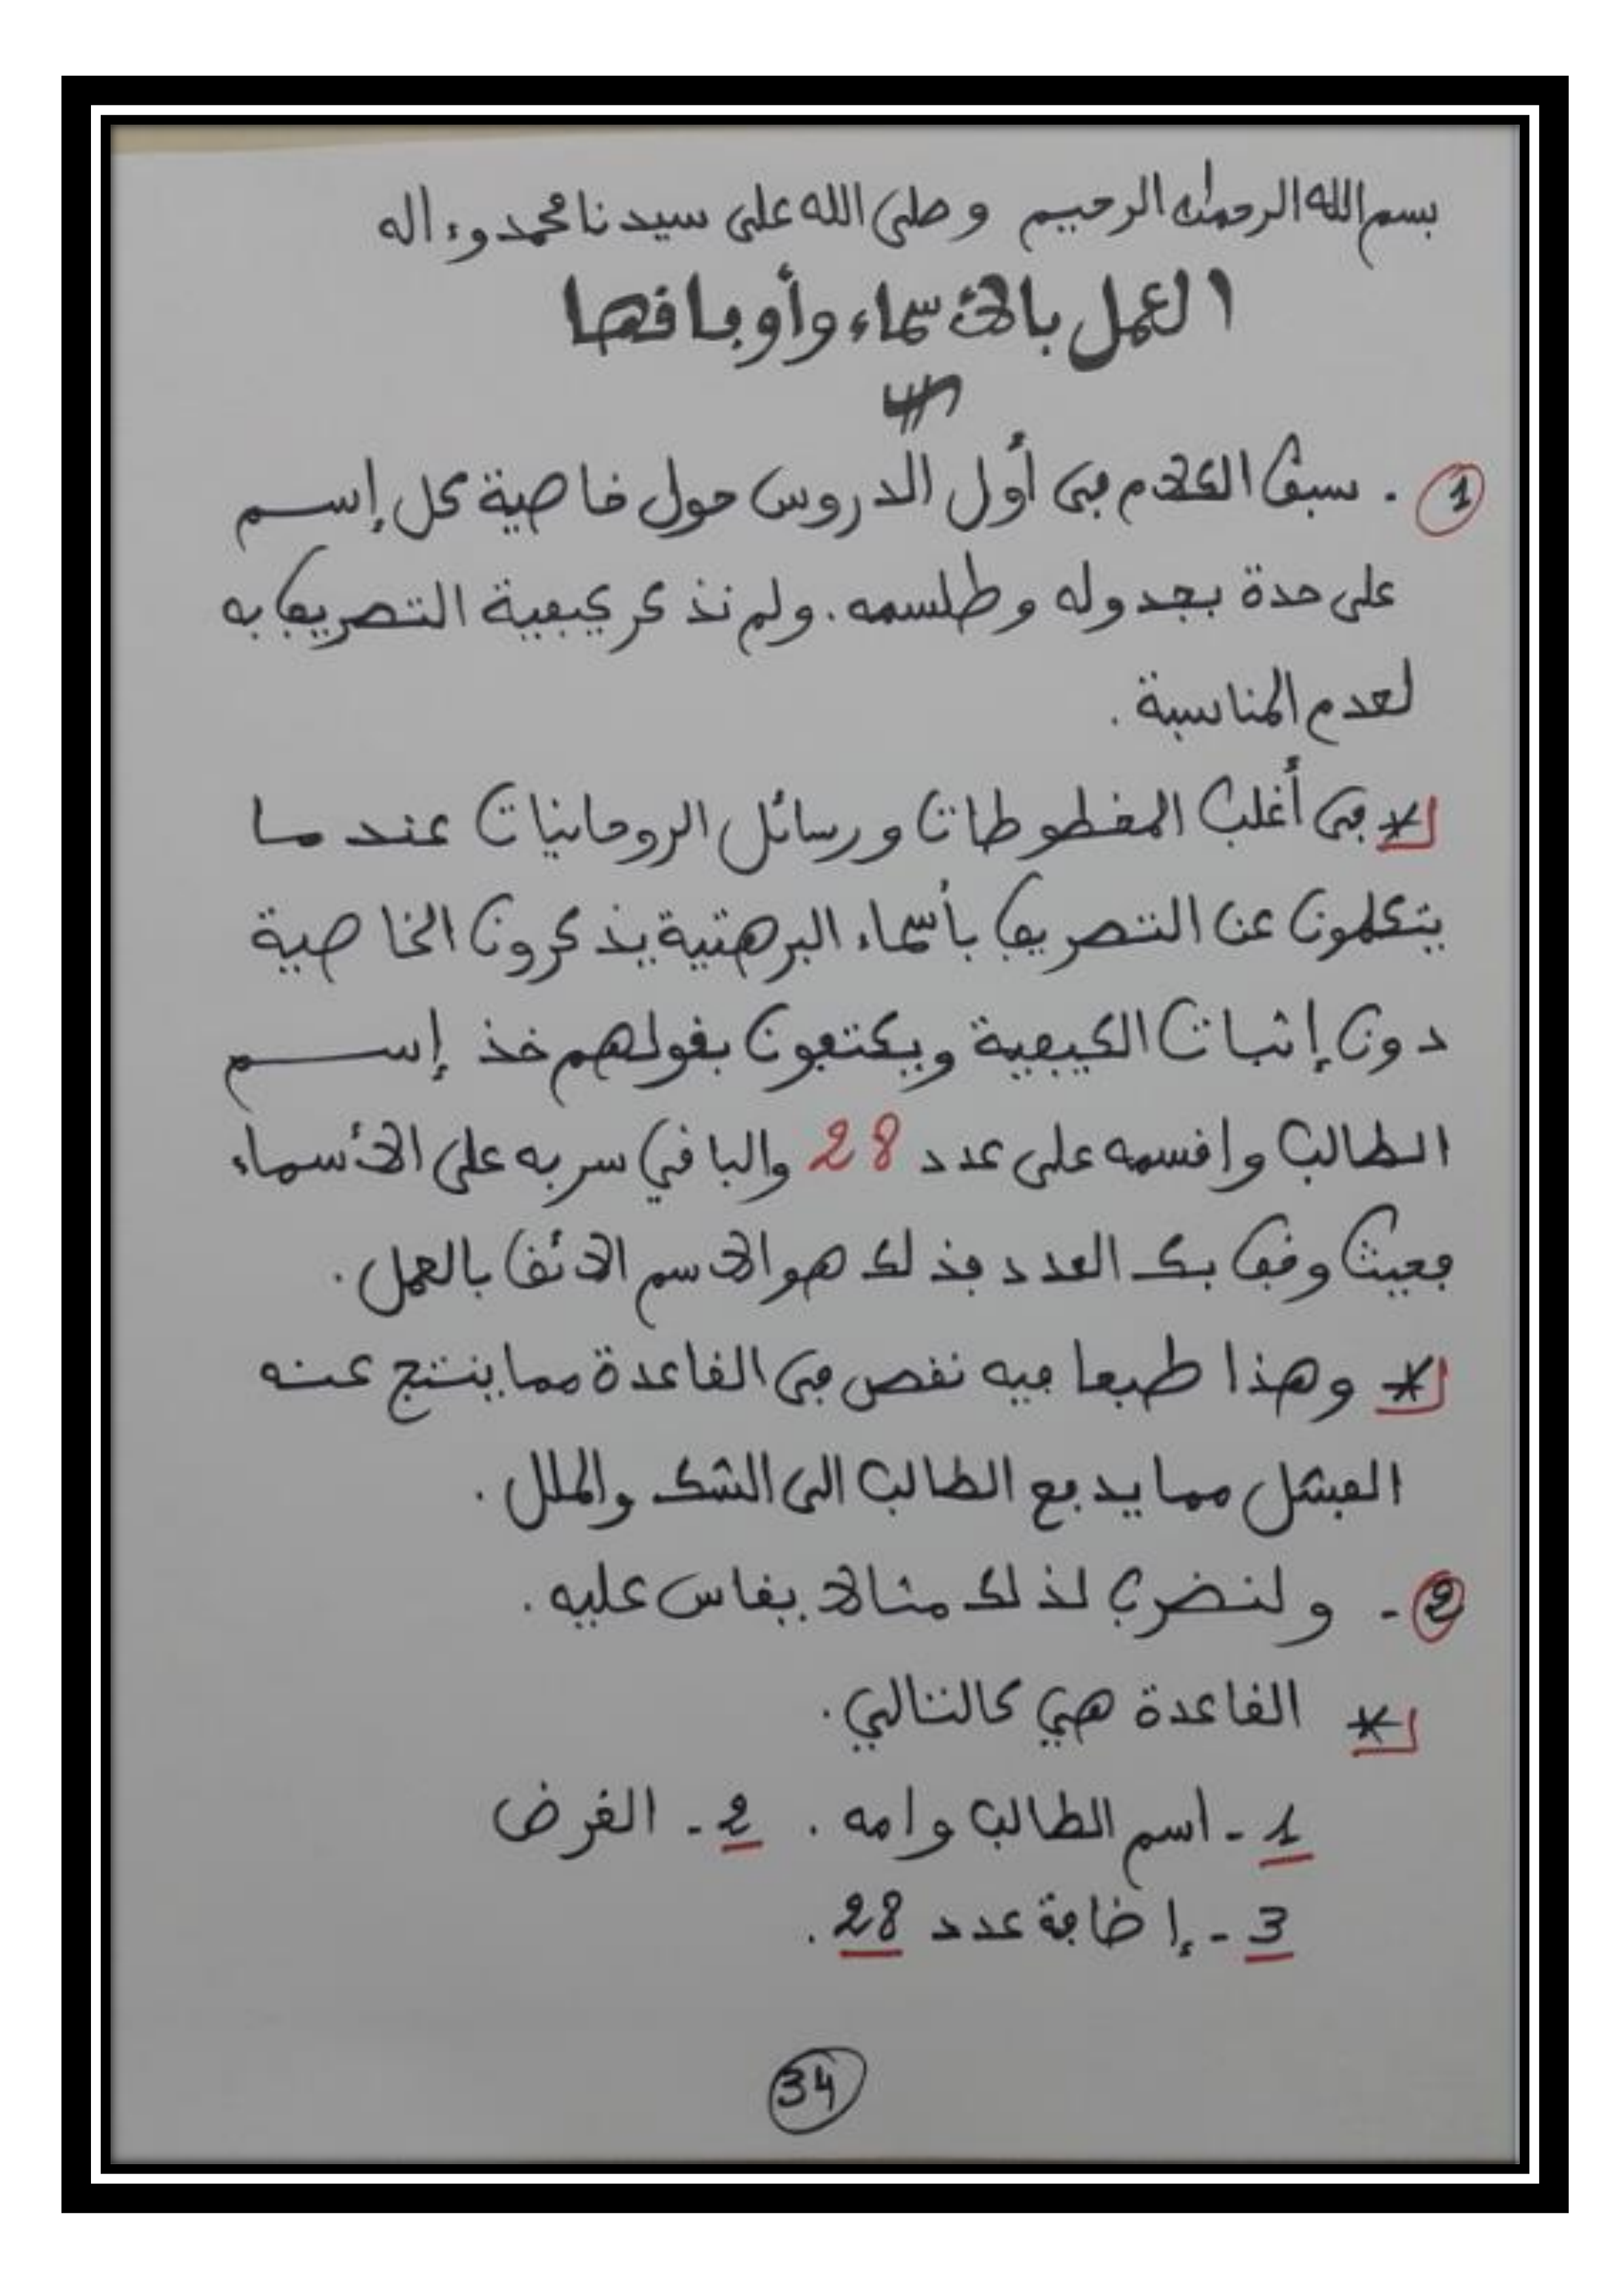 بسم الله الرحمان الرحيم وصلى الله على سيدنا محمد وءاله
العمل بالأسماء وأوفاقها
1 . سبق الكلام في أول الدروس حول خاصية كل إسم
على حدة بجدوله وطلسمه . ولم نذكر كيفية التصريف به
لعدم المناسبة .
* في أغلب المخطوطات ورسائل الروحانيات عندما
يتكلمون عن التصريف بأسماء البرهتية يذكرون الخاصية
دون إثبات الكيفية ويكتفون بقولهم خذ إسم
الطالب واقسمه على عدد 28 والباقي سر به على الأسماء
فحيث وقف بك العدد فذلك هو الاسم الائق بالعمل .
* وهذا طبعا فيه نقص في القاعدة مما ينتج عنه
الفشل مما يدفع الطالب الى الشك والملل .
2 - ولنضرب لذلك مثالا يقاس عليه .
* القاعدة هي كالتالي .
1 - اسم الطالب وامه . 2 - الغرض
3 - إضافة عدد 28 .
34